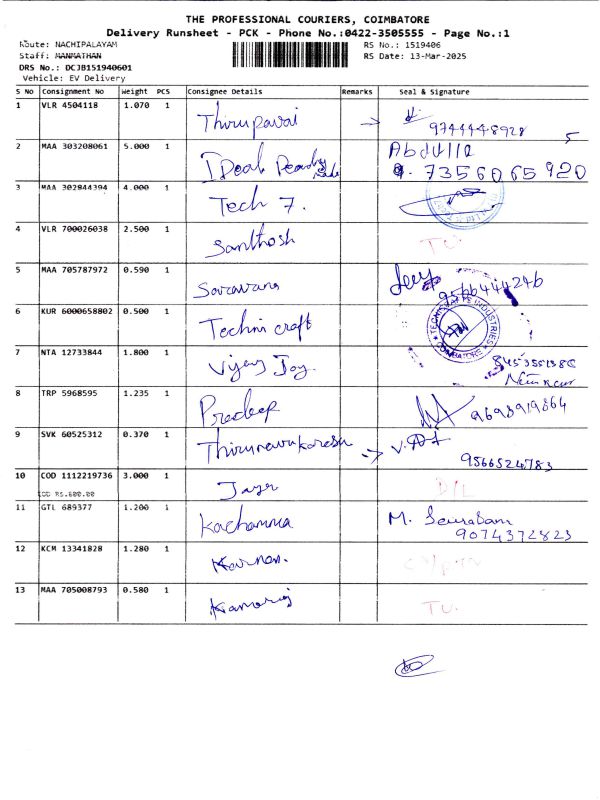 THE PROFESSIONAL COURIERS, COIMBATORE
Delivery Runsheet - PCK - Phone No.:0422-3505555 - Page No.:1
Route: NACHIPALAYAM RS No.: 1519406
Staff: MANMATHAN RS Date: 13-Mar-2025
DRS No.: DCJB151940601
Vehicle: EV Delivery
S No Consignment No Weight PCS Consignee Details Remarks Seal & Signature
1 VLR 4504118 1.070 1 Thirupavai 9744448928
5
2 MAA 303208061 5.000 1 Ideal Abdulla
7356065920
3 MAA 302844394 4.000 1 Tech 7.
4 VLR 700026038 2.500 1 Santhosh TU.
5 MAA 705787972 0.590 1 Saravana
6 KUR 6000658802 0.500 1 Techni craft TECHNICRAFTE INDUSTRIES COIMBATORE
7 NTA 12733844 1.800 1 Vijay Joy.
8 TRP 5968595 1.235 1 Pradeep 9698919864
9 SVK 60525312 0.370 1 9566524783
10 COD 1112219736 3.000 1 D/L
COD RS.600.00
11 GTL 689377 1.200 1 Kachamma M.
9074372823
12 KCM 13341828 1.280 1 Karnan.
13 MAA 705008793 0.580 1 Kamaraj TU.